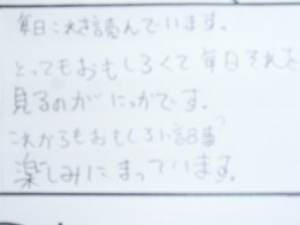 毎日これを読んでいます。
とってもおもしろくて毎日それを
見るのがにっかです。
これからもおもしろい記事
楽しみにまっています。